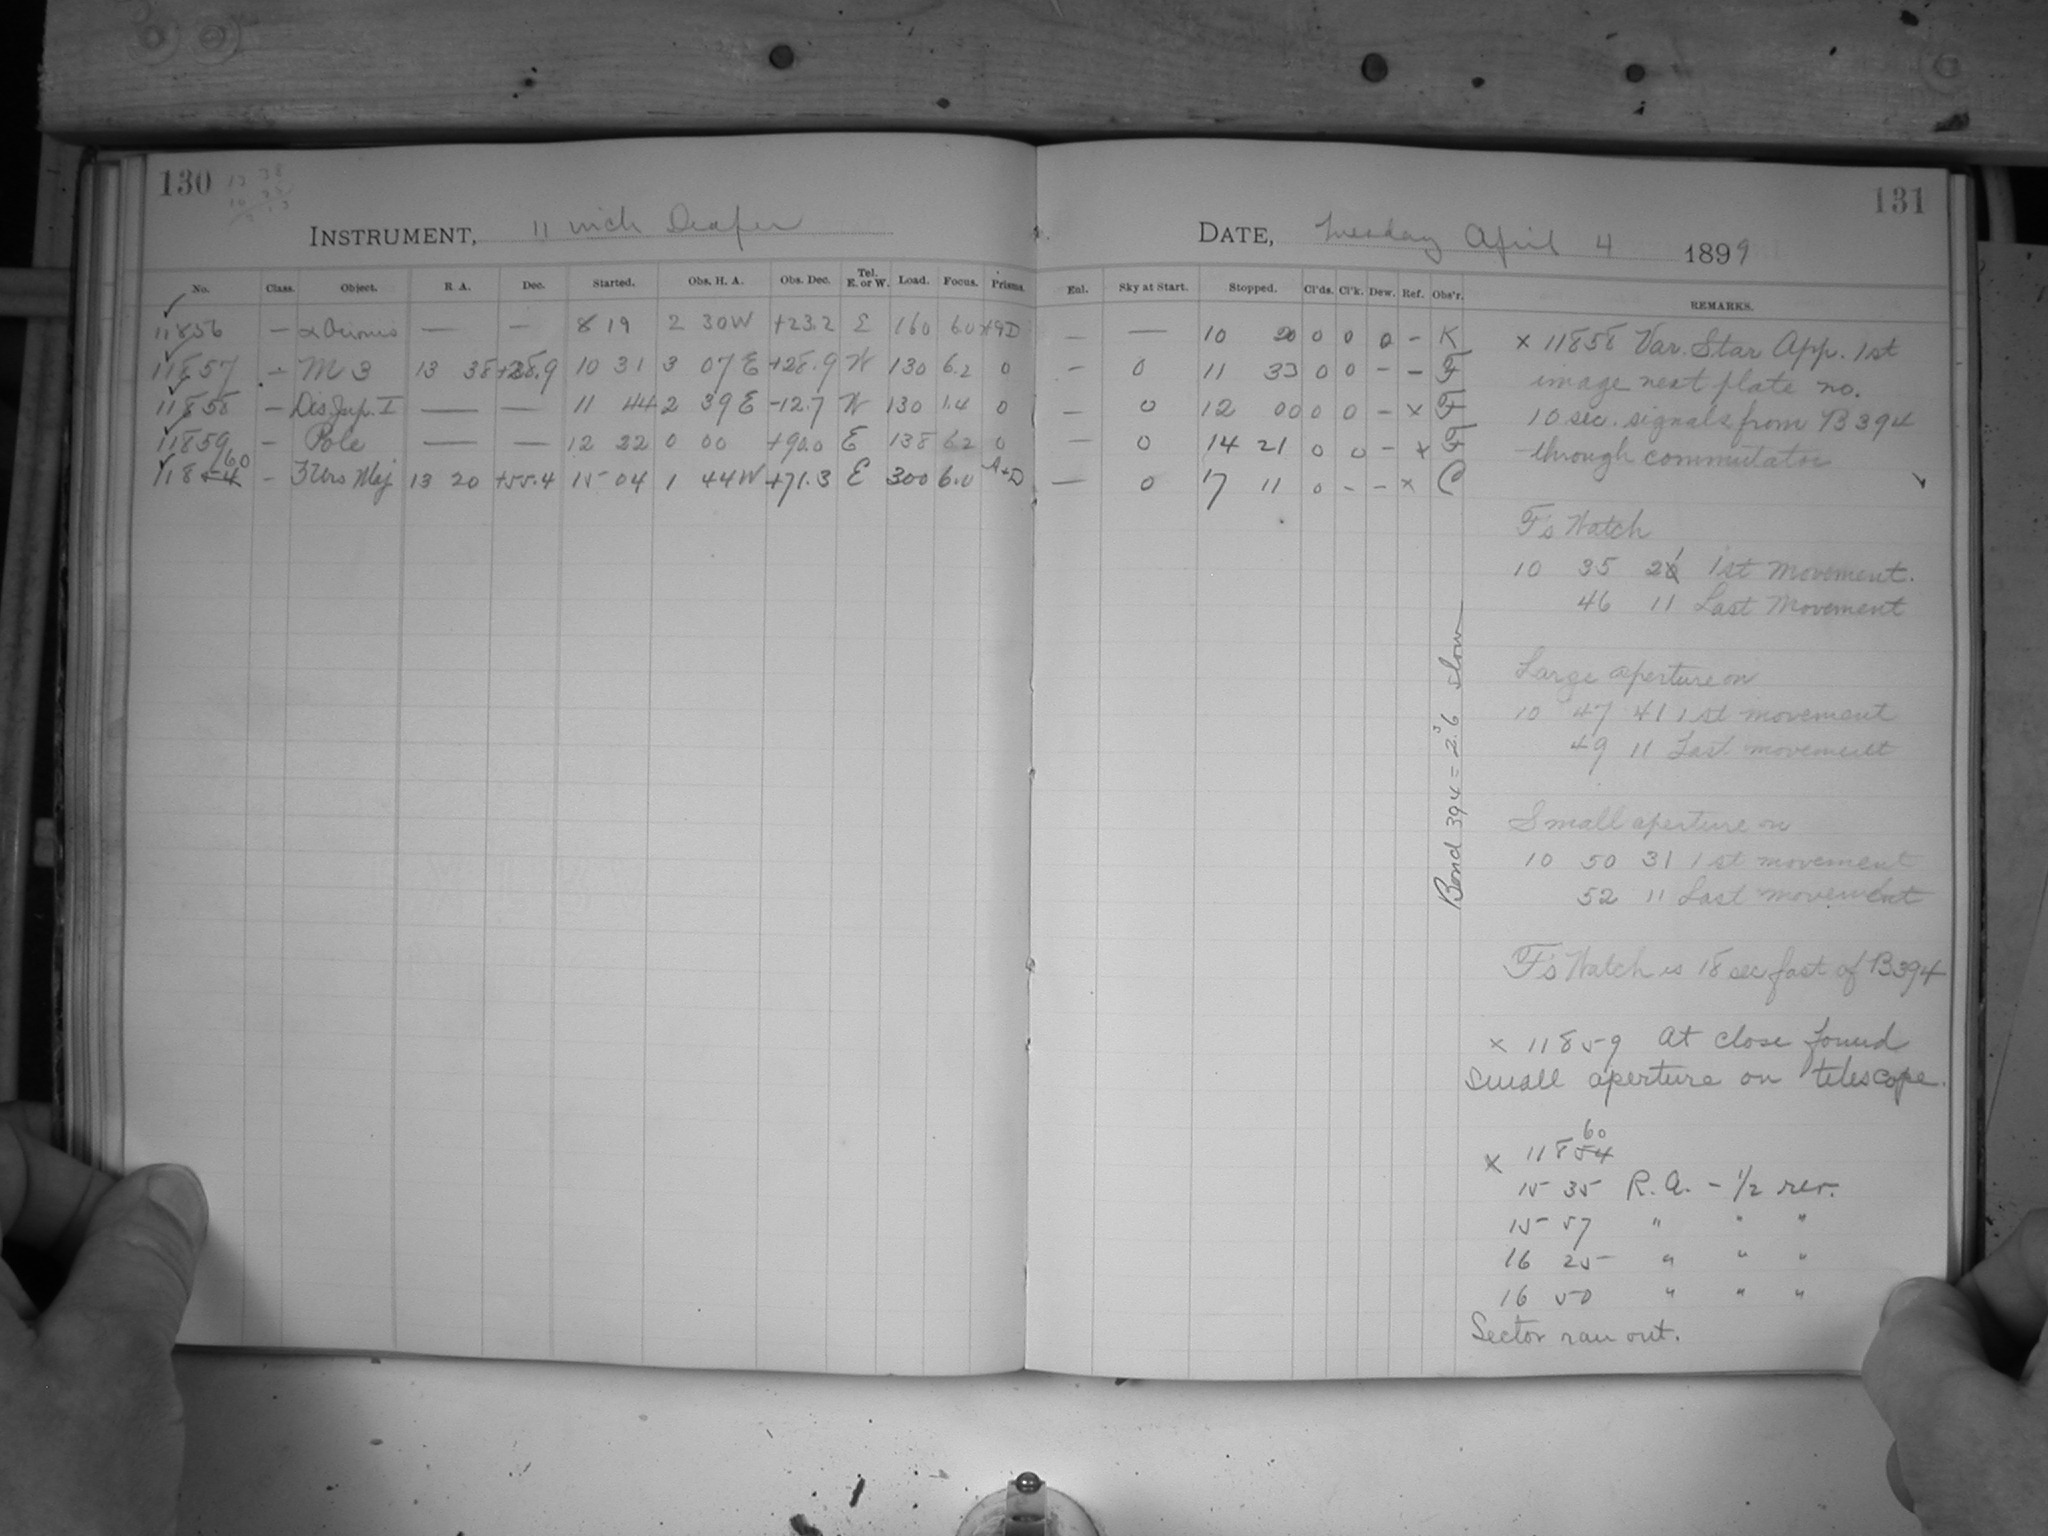 130
131
INSTRUMENT, 11 inch Draper
DATE, Tuesday April 4 1899
No. Class. Object. R. A. Dec. Started. Obs. H. A. Obs. Dec. Tel. E. or W. Load. Focus. Prisms. Enl. Sky at Start. Stopped. Cl'ds. Cl'k. Dew. Ref. Obs'r. REMARKS.
11856 — α Orionis — — 8 19 2 30 W +23.2 E 160 6.0 A+D — — 10 20 0 0 0 – K
11857 — M 3 13 38 +28.9 10 31 3 07 E +28.9 W 130 6.2 0 — 0 11 33 0 0 – – F
11858 — Des. Jup. I — — 11 44 2 39 E -12.7 W 130 1.4 0 — 0 12 00 0 0 – x F
11859 — Pole — — 12 22 0 00 +90.0 E 138 6.2 0 — 0 14 21 0 0 – x F
60
118 54 – 3 Urs Maj 13 20 +55.4 15 04 1 44 W +71.3 E 300 6.0 A+D — 0 17 11 0 – – x C
x 11858 Var. Star App. 1st
image next plate no.
10 sec. signals from B 394
through commutator
F's Watch
10 35 21 1st Movement.
46 11 Last Movement
Large aperture on
10 47 41 1st movement
49 11 Last movement
Small aperture on
10 50 31 1st movement
52 11 Last movement
F's Watch is 18 sec fast of B 394
Bond 394 = 2.6 s slow
x 11859 At close found
small aperture on telescope.
60
x 11854
15 35 R.A. – 1/2 rev.
15 57 " " "
16 25 " " "
16 50 " " "
Sector ran out.